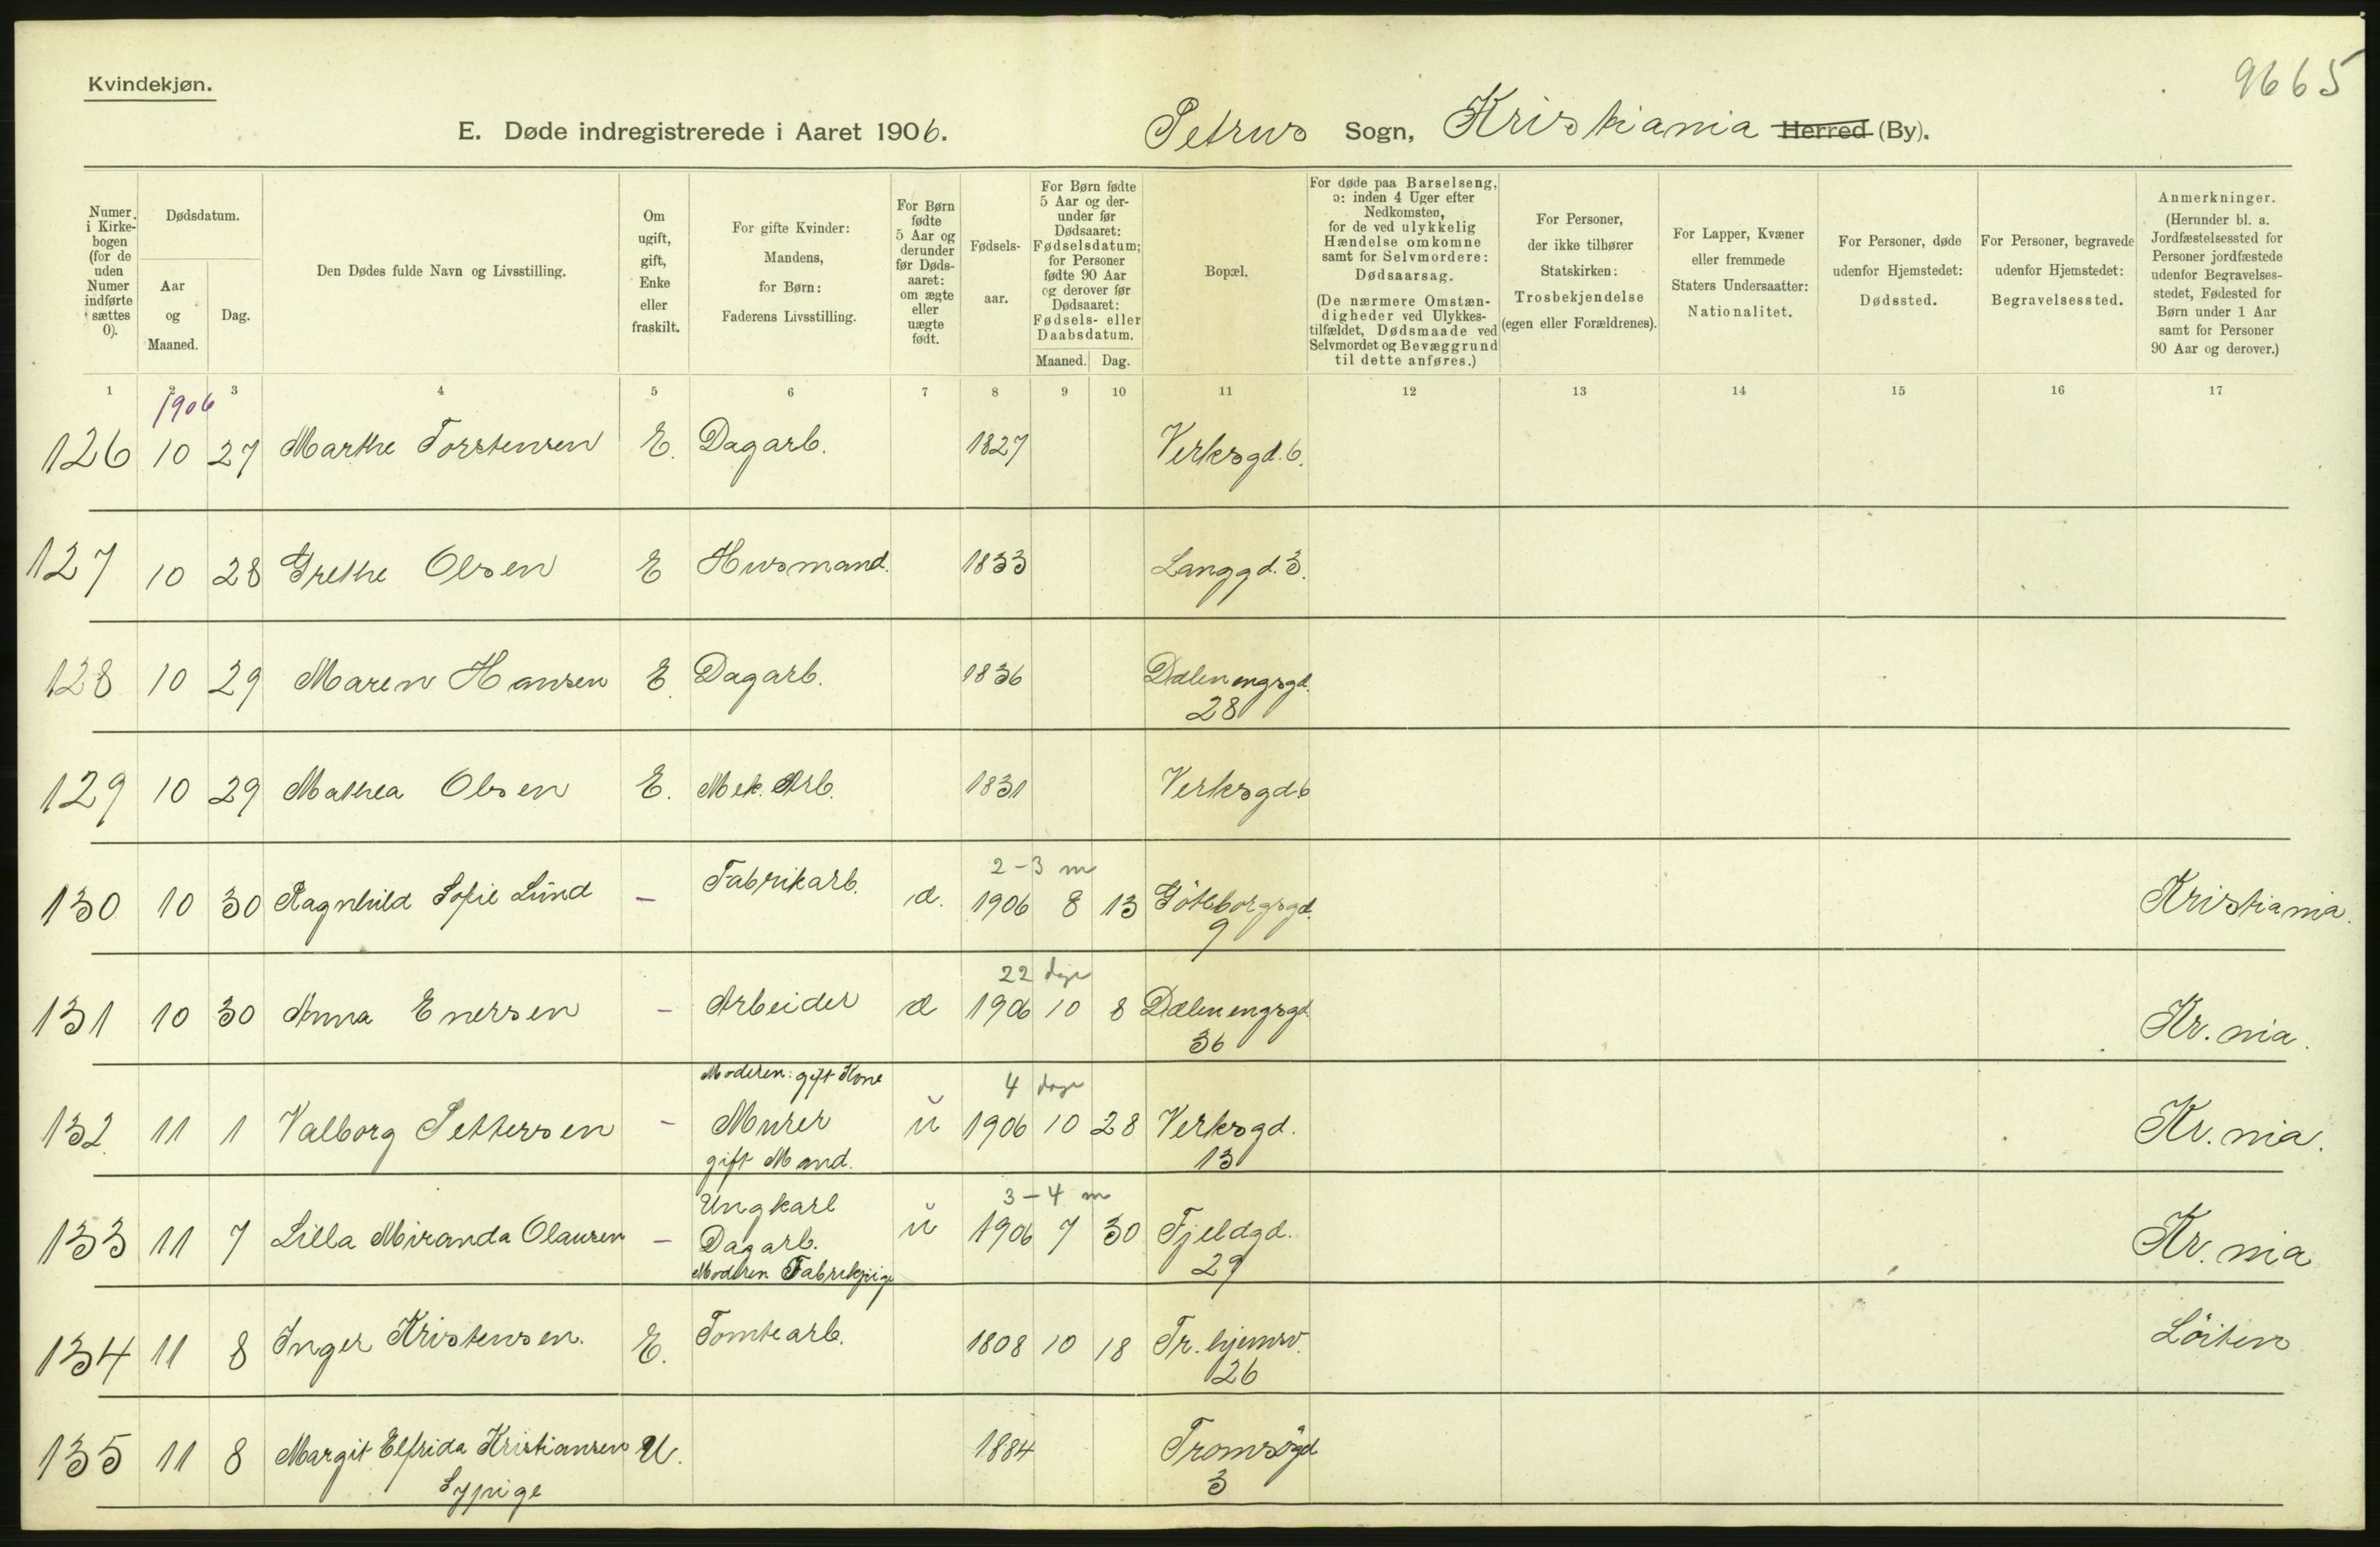 Kvindekjøn.
9665
E. Døde indregistrerede i Aaret 1906. Petrus Sogn, Kristiania Herred (By).
Numer i Kirkebogen (for de uden Numer indførte sættes 0).
Dødsdatum.
Aar og Maaned.
Dag.
Den Dødes fulde Navn og Livsstilling.
Om ugift, gift, Enke eller fraskilt.
For gifte Kvinder: Mandens, for Børn: Faderens Livsstilling.
For Børn fødte 5 Aar og derunder før Dødsaaret: om ægte eller uægte født.
Fødselsaar.
For Børn fødte 5 Aar og derunder før Dødsaaret: Fødselsdatum; for Personer fødte 90 Aar og derover før Dødsaaret: Fødsels- eller Daabsdatum.
Maaned. Dag.
Bopæl.
For døde paa Barselseng, ɔ: inden 4 Uger efter Nedkomsten, for de ved ulykkelig Hændelse omkomne samt for Selvmordere: Dødsaarsag.
(De nærmere Omstændigheder ved Ulykkestilfældet, Dødsmaade ved Selvmordet og Bevæggrund til dette anføres.)
For Personer, der ikke tilhører Statskirken: Trosbekjendelse (egen eller Forældrenes).
For Lapper, Kvæner eller fremmede Staters Undersaatter: Nationalitet.
For Personer, døde udenfor Hjemstedet: Dødssted.
For Personer, begravede udenfor Hjemstedet: Begravelsessted.
Anmerkninger.
(Herunder bl. a. Jordfæstelsessted for Personer jordfæstede udenfor Begravelsesstedet, Fødested for Børn under 1 Aar samt for Personer 90 Aar og derover.)
1 2 3 4 5 6 7 8 9 10 11 12 13 14 15 16 17
1906
126 10 27 Marthe Torstensen E. Dagarb. 1827 Verksgd. 6.
127 10 28 Grethe Olsen E Husmand. 1833 Langgd. 3.
128 10 29 Maren Hansen E. Dagarb. 1836 Dælenengsgd.
28
129 10 29 Mathea Olsen E. Mek. Arb. 1831 Verksgd 6
2-3 m
130 10 30 Ragnhild Sofie Lund - Fabrikarb. æ. 1906 8 13 Göteborgsgd. Kristiania.
9
22 dage
131 10 30 Anna Enersen - Arbeider æ 1906 10 8 Dælenengsgd. Kr.nia.
36
Moderen: gift Kone 4 dage
132. 11 1 Valborg Pettersen - Murer u 1906 10 28 Verksgd. Kr.nia.
gift Mand. 13
Ungkarl 3-4 m
133 11 7 Lilla Miranda Olausen - Dagarb. u 1906 7 30 Fjeldgd. Kr.nia
Moderen Fabrikpige 29
134 11 8 Inger Kristensen. E. Tomtearb. 1808 10 18 Tr.hjemsv. Löiten
26
135 11 8 Margit Elfrida Kristiansen U. 1884 Tromsögd
Sypige 3